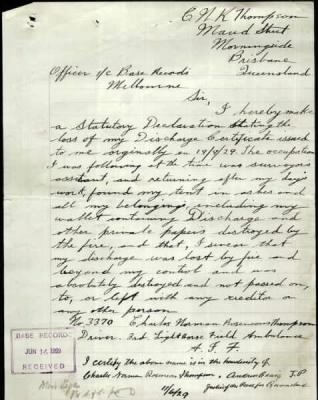 C N K Thompson
Maud Street
Morningside
Brisbane
Queensland
Officer i/c Base Records
Melbourne
Sir,
I hereby make
a Statutory Declaration stating the
loss of my Discharge Certificate issued
to me orginally on 19/9/29. The occupation
I was following at the time was surveyors
assistant, and returning after my days
work, found my tent in ashes and
all my belongings, including my
wallet containing Discharge and
other private papers distroyed by
the fire, and that, I swear that
my discharge was lost by fire and
beyond my control and was
absolutely distroyed and not passed on,
to, or left with any creditor or
any other person
No 3370 Charles Norman Thompson
Driver. 3rd Light Horse Field Ambulance
A. I. F.
I certify the above name is in the handwriting of
Charles Norman Thompson. Andrew J.P
Justice of the Peace for Queensland
11/6/29
BASE RECORDS
JUN 14 1929
RECEIVED